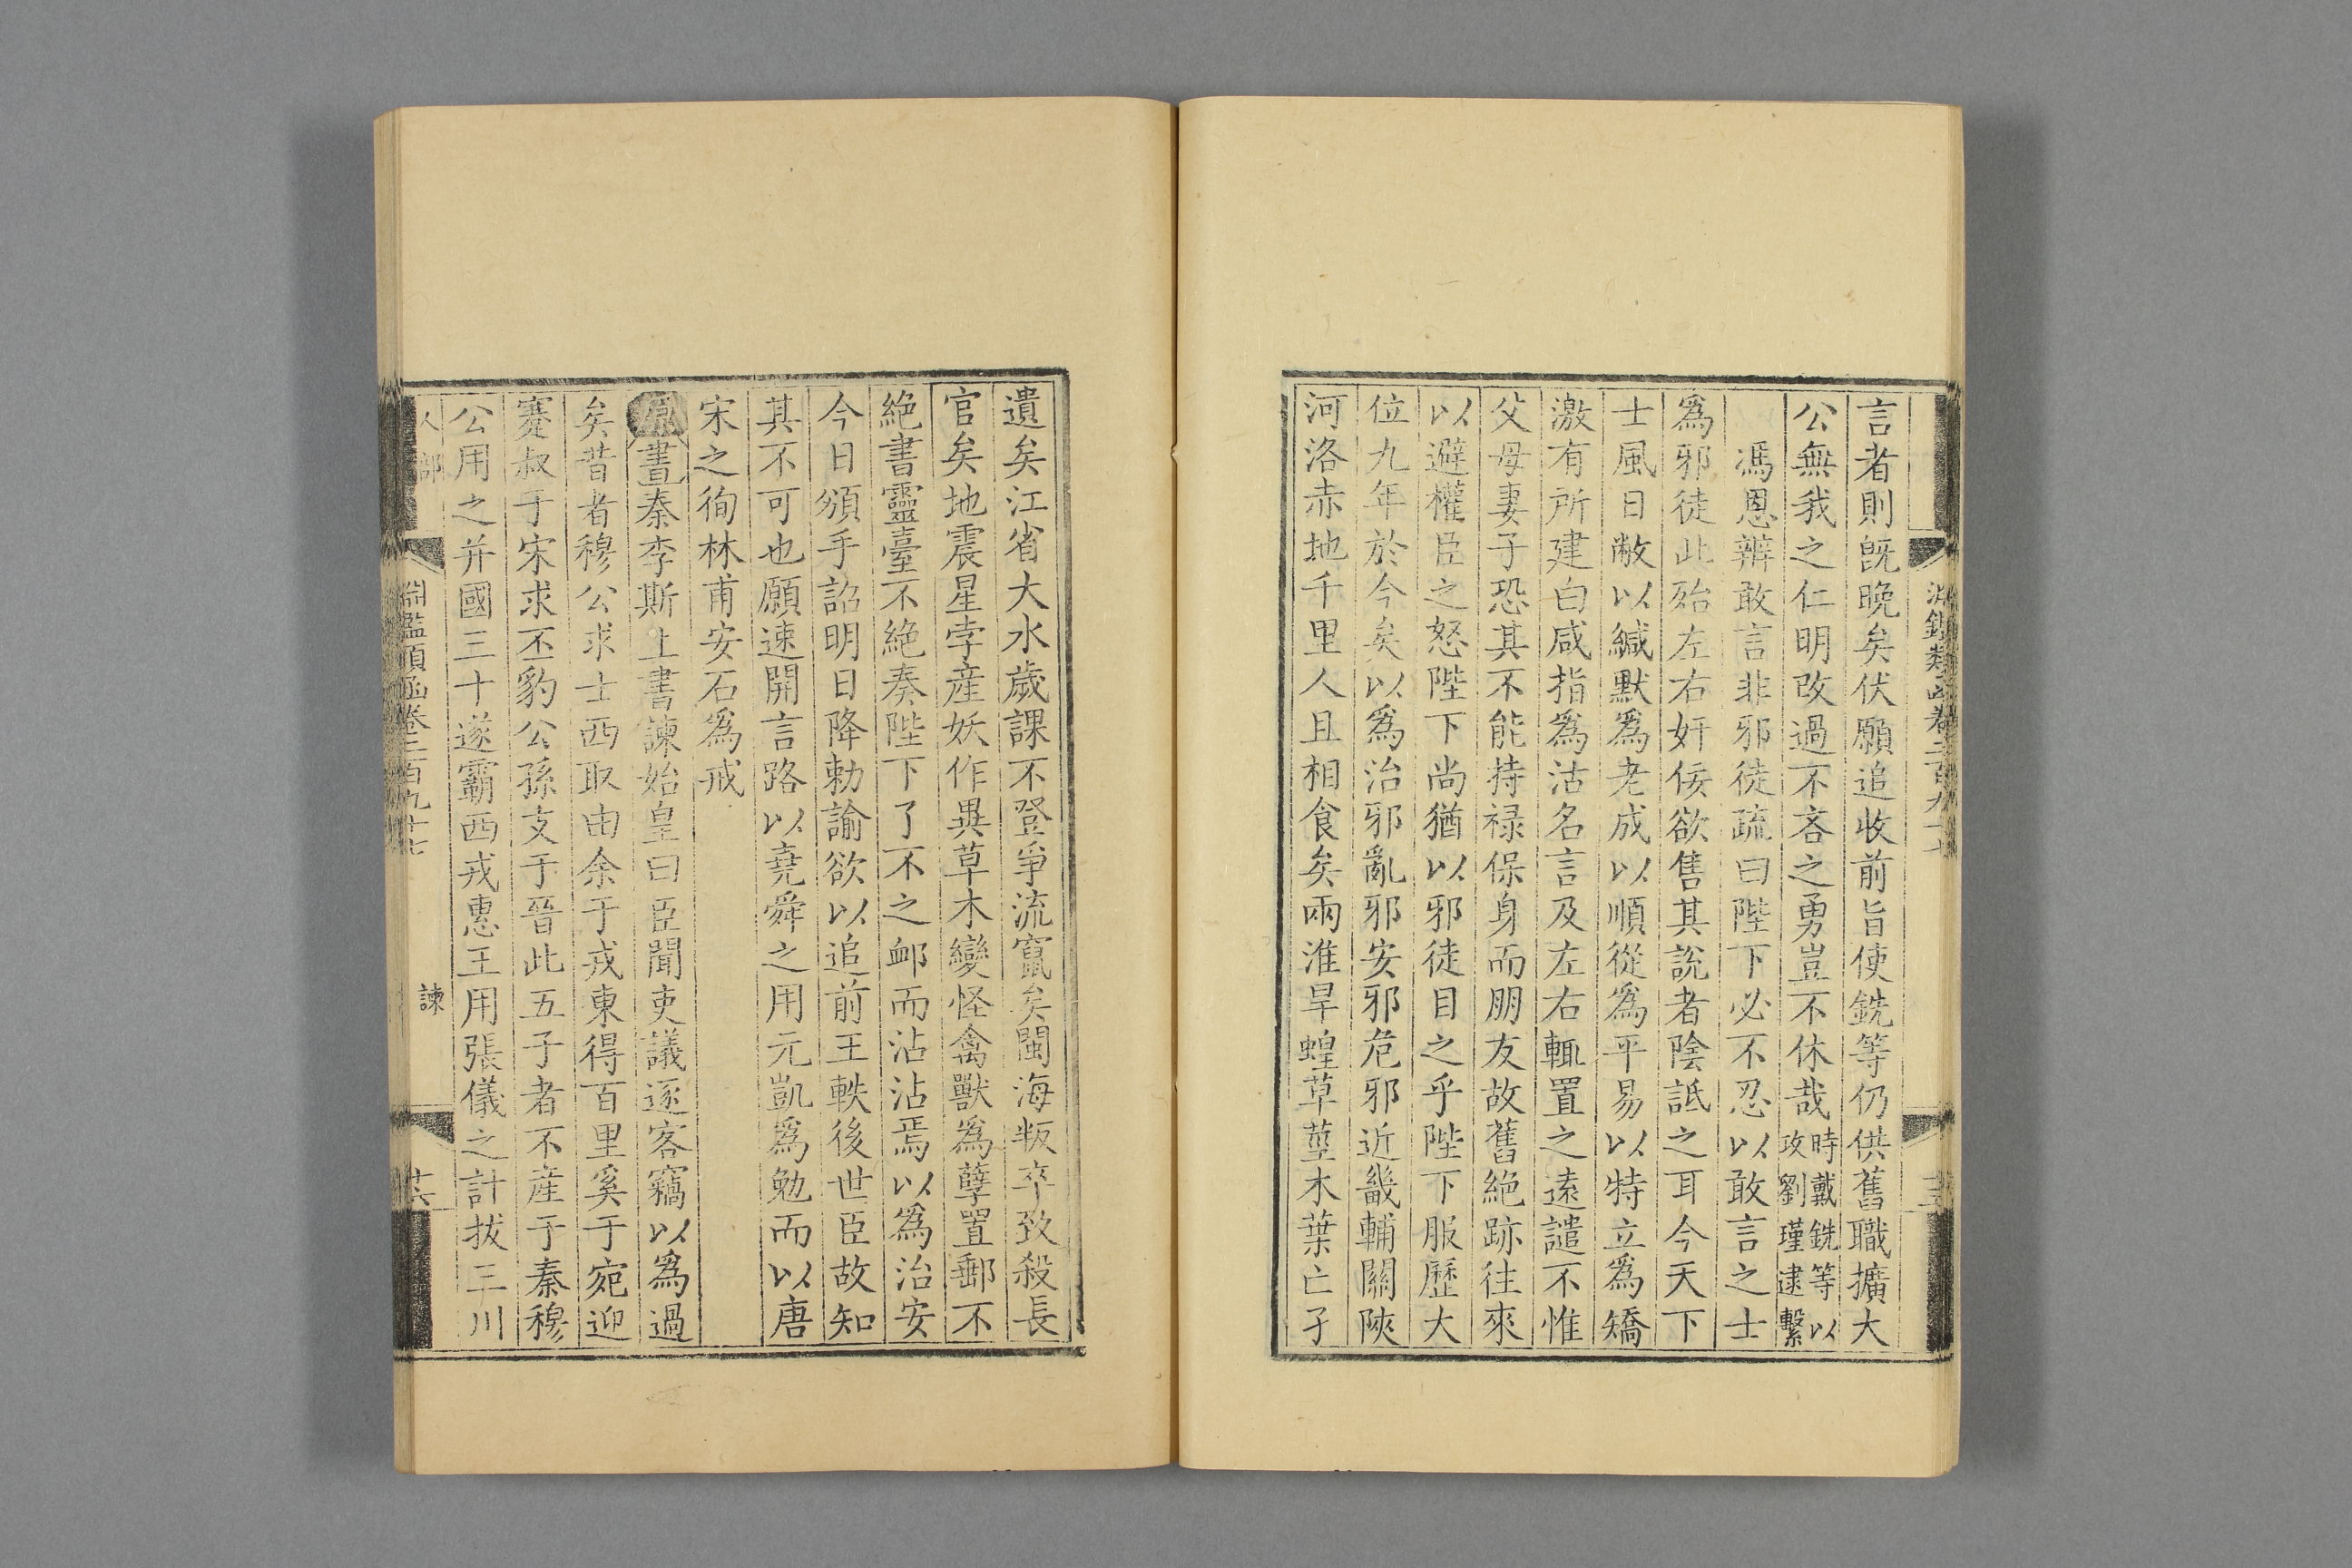 淵鑑類函卷二百九十七
言者則旣晚矣伏願追收前旨使銑等仍供舊職擴大
公無我之仁明改過不吝之勇豈不休哉時戴銑等以攻劉瑾逮繫
馮恩辨敢言非邪徒疏曰陛下必不忍以敢言之士
爲邪徒此殆左右奸佞欲售其說者陰詆之耳今天下
士風日敝以緘默爲老成以順從爲平易以特立爲矯
激有所建白咸指爲沽名言及左右輒置之遠譴不惟
父母妻子恐其不能持祿保身而朋友故舊絕跡往來
以避權臣之怒陛下尚猶以邪徒目之乎陛下服歷大
位九年於今矣以爲治邪亂邪安邪危邪近畿輔關陝
河洛赤地千里人且相食矣兩淮旱蝗草莖木葉亡孑
遺矣江省大水歲課不登爭流竄矣閩海叛卒致殺長
官矣地震星孛産妖作異草木變怪禽獸爲孽置郵不
絕書靈臺不絕奏陛下了不之衈而沾沾焉以爲治安
今日頒手詔明日降勅諭欲以追前王軼後世臣故知
其不可也願速開言路以堯舜之用元凱爲勉而以唐
宋之徇林甫安石爲戒
原書秦李斯上書諫始皇曰臣聞吏議逐客竊以爲過
矣昔者穆公求士西取由余于戎東得百里奚于宛迎
蹇叔于宋求丕豹公孫支于晉此五子者不産于秦穆
公用之并國三十遂霸西戎惠王用張儀之計拔三川
人部 淵鑑類函卷二百九十七 諫 十六